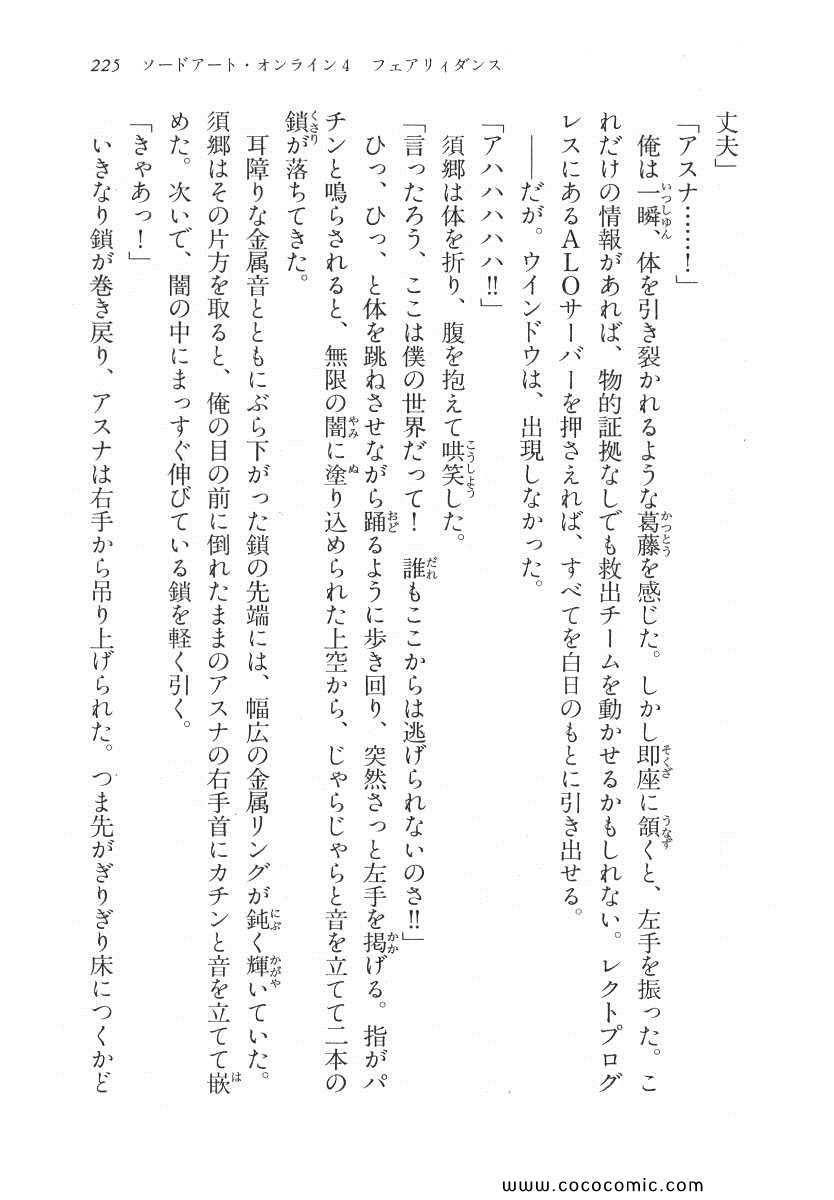 225　ソードアート・オンライン4　フェアリィダンス
丈夫」
「アスナ……！」
　俺は一瞬、体を引き裂かれるような葛藤を感じた。しかし即座に頷くと、左手を振った。こ
れだけの情報があれば、物的証拠なしでも救出チームを動かせるかもしれない。レクトプログ
レスにあるALOサーバーを押さえれば、すべてを白日のもとに引き出せる。
　――だが。ウインドウは、出現しなかった。
「アハハハハハ!!」
　須郷は体を折り、腹を抱えて哄笑した。
「言ったろう、ここは僕の世界だって！　誰もここからは逃げられないのさ!!」
　ひっ、ひっ、と体を跳ねさせながら踊るように歩き回り、突然さっと左手を掲げる。指がパ
チンと鳴らされると、無限の闇に塗り込められた上空から、じゃらじゃらと音を立てて二本の
鎖が落ちてきた。
　耳障りな金属音とともにぶら下がった鎖の先端には、幅広の金属リングが鈍く輝いていた。
須郷はその片方を取ると、俺の目の前に倒れたままのアスナの右手首にカチンと音を立てて嵌
めた。次いで、闇の中にまっすぐ伸びている鎖を軽く引く。
「きゃあっ！」
　いきなり鎖が巻き戻り、アスナは右手から吊り上げられた。つま先がぎりぎり床につくかど
www.cococomic.com